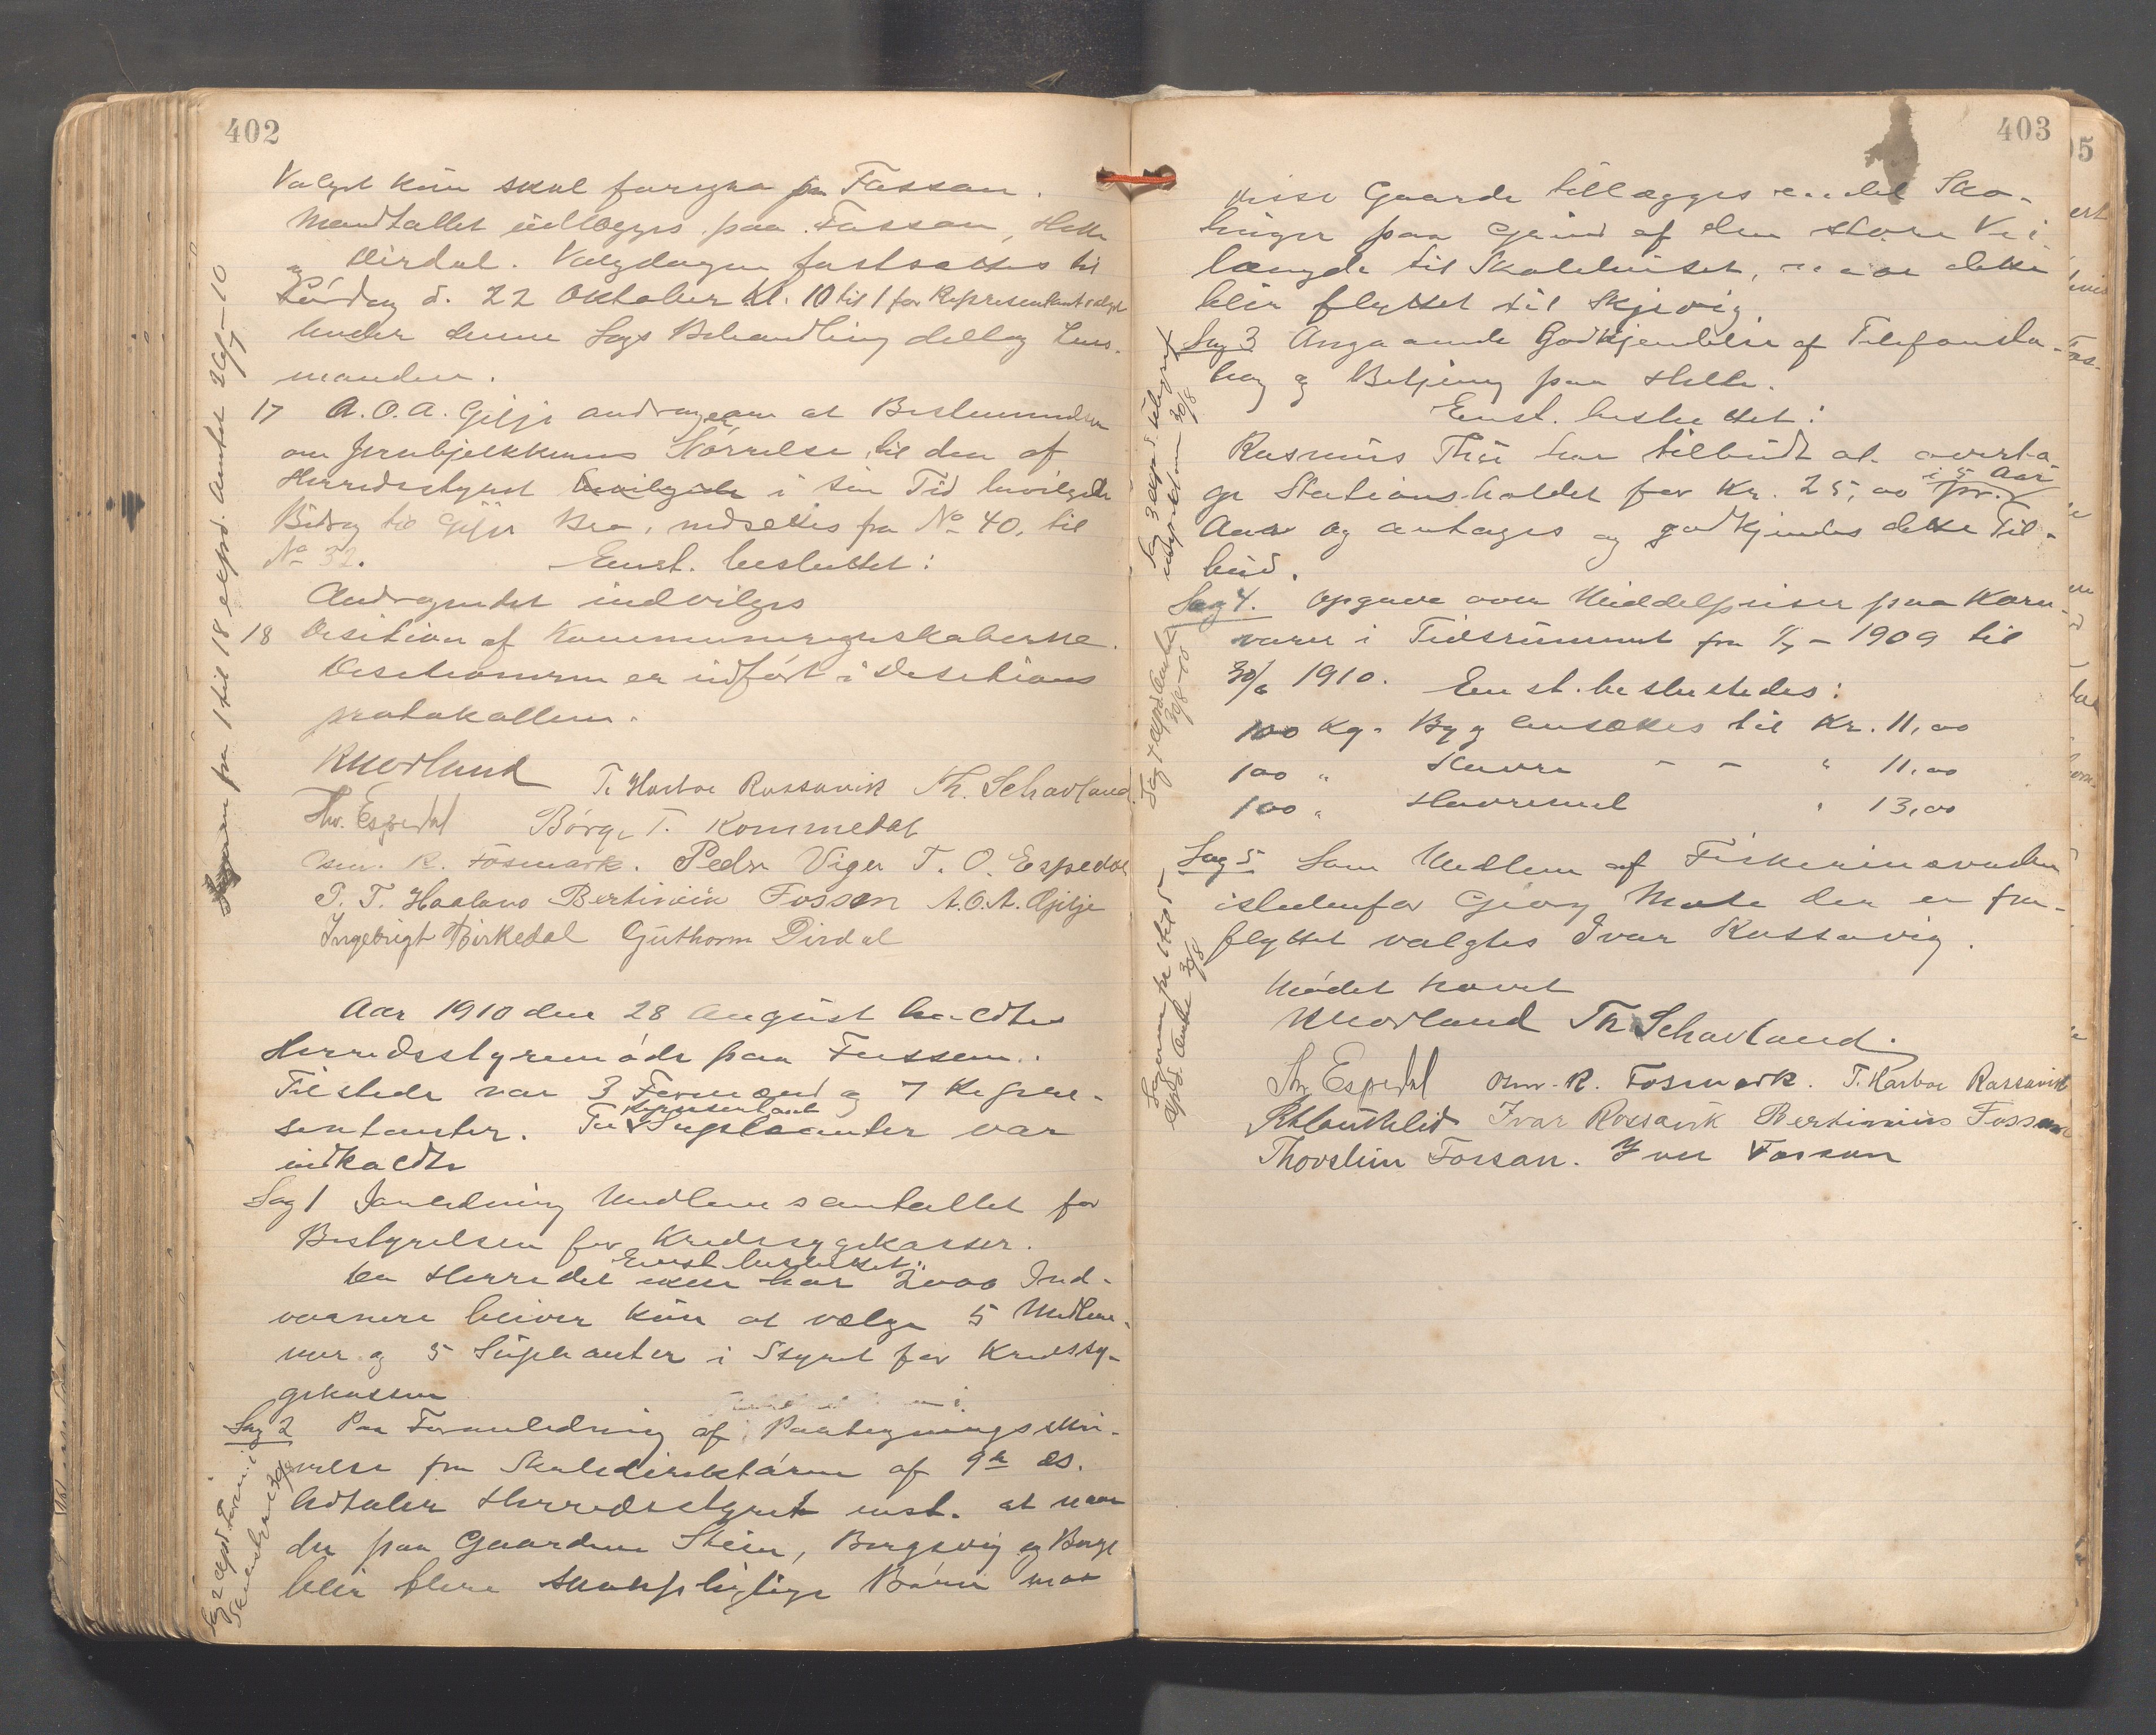 402
Valget kun skal foregaa paa Fossan.
Mandtallet udlægges paa Fossan, Helle
og Dirdal. Valgdagen fastsættes til
Lørdag d. 22 Oktober Kl. 10 til 1 for Representantvalget
Under denne Sags Behandling deltog Lens-
manden.
17 A. O. A. Gilje andrager om at Bestemmelsen
om Jernbjelkkernes Størrelse til den af
Herredsstyret bevilgede i sin Tid bevilgede
Bidrag til Gilje Bro, nedsættes fra No 40, til
No 32. Enst. besluttet:
Andragendet indvilges
18 Desition af Kommuneregnskaberne.
Desitionen er indført i Desitions
protokollen.
RMorland T. Harboe Rossavik Th. Schavland
Thv. Espedal Børge T. Kommedal
Osm. R. Fosmark. Peder Viger T. O. Espedal
P. T. Haaland Bertinius Fossan A. O. A. Gilje
Ingebrigt Birkedal Guthorm Dirdal
Sagerne fra 1 til 18 expd. Amtet 26/7-10
Aar 1910 den 28 August holdtes
Herredsstyremøde paa Fossan.
Tilstede var 3 Formænd og 7 Repræ-
sentanter. To Representant Supleanter var
indkaldte
Sag 1 Indledning Medlemsantallet for
Bestyrelsen for Kredssygekasser.
Enst. besluttet:
Da Herredet ikke har 2000 Ind-
vaanere bliver kun at vælge 5 Medlem-
mer og 5 Supleanter i Styret for Kredssy-
gekassen
Sag 2 Paa Foranledning af Paategningsskri-
velse fra Skoledirektøren af 9de ds.
udtaler Herredsstyret enst. at naar
der paa Gaardene Stein, Bergsvig og Berge
blir flere skolepligtige Børn maa
Sag 2 expd. Form. i
Skolestyret 30/8
403
disse Gaarde tillægges endel Sko-
linger paa Grund af den store Vei-
længde til Skolehuset, naar dette
blir flyttet til Skjevig
Sag 3 Angaaende Godkjendelse af Telefonsta-
tion og Betjening paa Helle.
Enst. besluttet:
Rasmus Thu har tilbudt at overta-
ge Stationsholdet for Kr. 25,00 i 5 Aar pr.
Aar og antages og godkjendes dette Til-
bud.
Sag 4. Opgave over Middelpriser paa Korn-
varer i Tidsrummet fra 1/7 - 1909 til
30/6 1910. Enst. besluttedes:
100 Kg. Byg ansættes til Kr. 11,00
100 " Havre - - " 11,00
100 " Havremel " 13,00
Sag 5 Som Medlem af Fiskerinævnden
istedenfor Georg Mele der er fra-
flyttet valgtes Ivar Rossavig.
Mødet hævet
RMorland Th. Schavland.
Thv Espedal Osm. R. Fosmark. T. Harboe Rossavik
Ivar Rossavik Bertinius Fossan
Thorstein Fossan. Iver Fossan
Sag 3 expd. telegraf
inspektøren 30/8
Sag 4 expd. Amtet
30/8-10
Sagerne fra 1 til 5
expd. Amtet 30/8